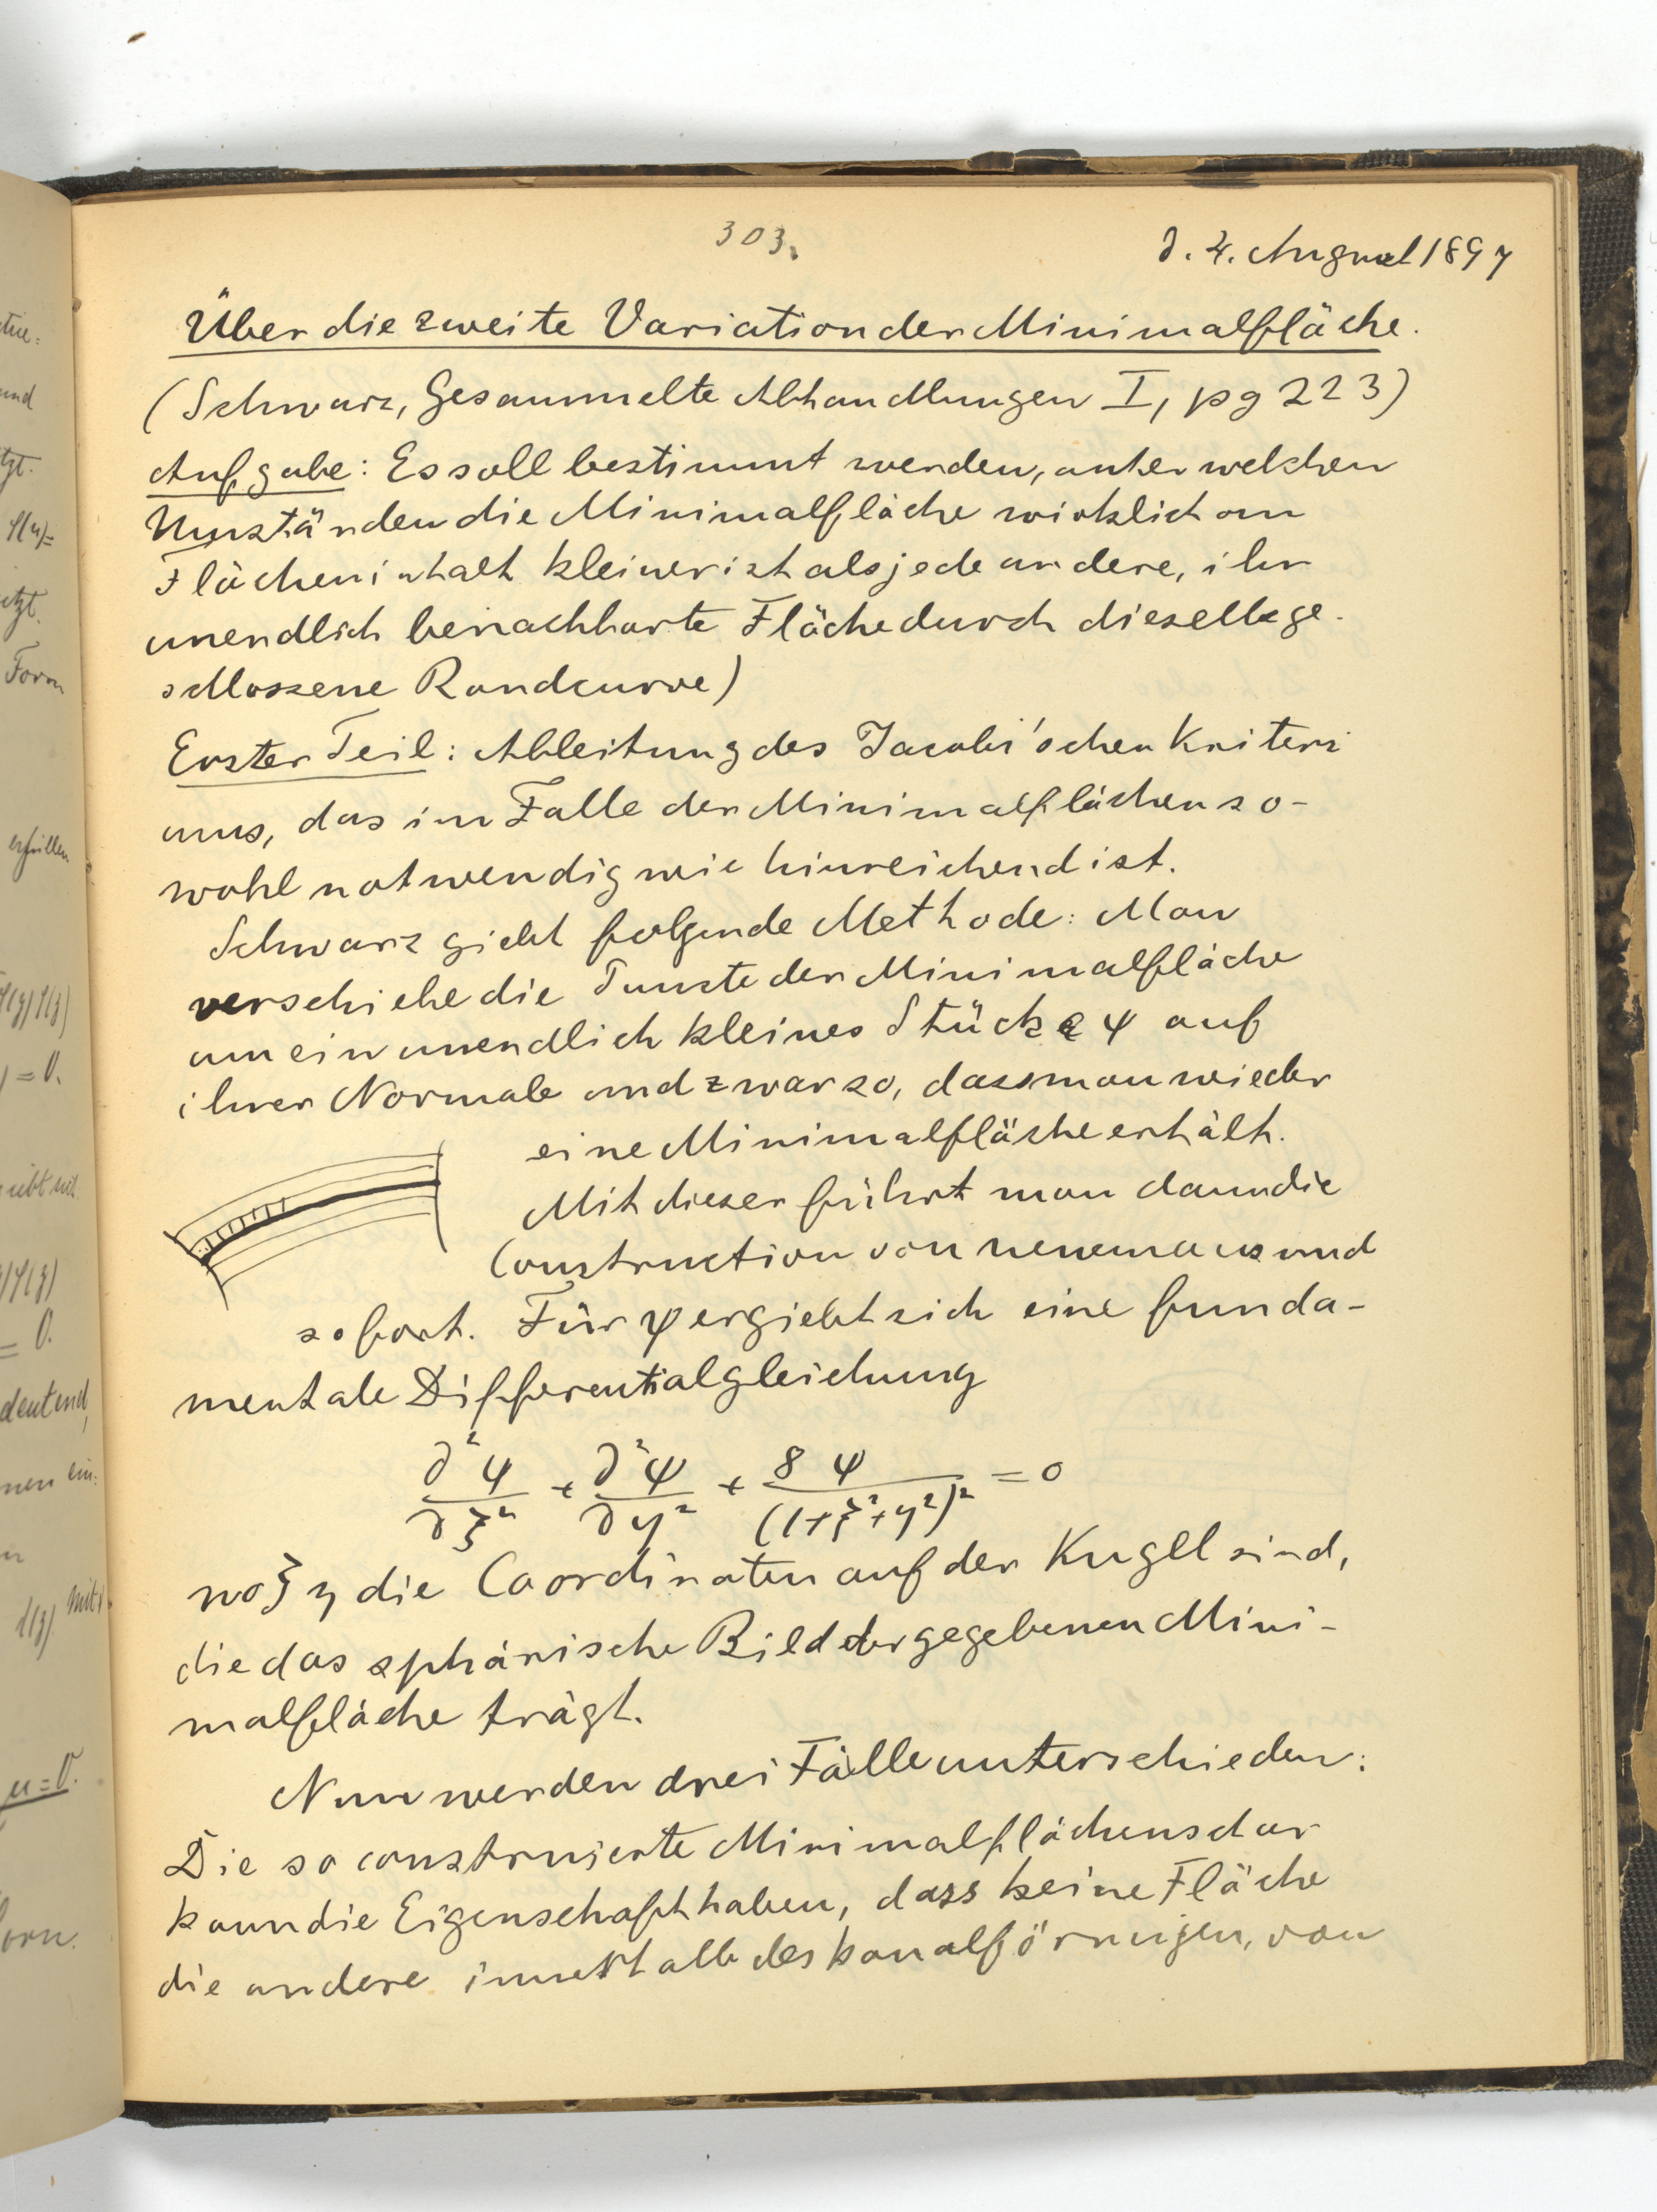 303.
d. 4. August 1897
Über die zweite Variation der Minimalfläche.
(Schwarz, Gesammelte Abhandlungen I, pg 223)
Aufgabe: Es soll bestimmt werden, unter welchen
Umständen die Minimalfläche wirklich an
Flächeninhalt kleiner ist als jede andere, ihr
unendlich benachbarte Fläche durch dieselbe ge-
schlossene Randcurve)
Erster Teil: Ableitung des Jacobi'schen Kriteri
ums, das im Falle der Minimalflächen so-
wohl notwendig wie hinreichend ist.
Schwarz giebt folgende Methode: Man
verschiebe die Punkte der Minimalfläche
um ein unendlich kleines Stück ε ψ auf
ihrer Normale und zwar so, dass man wieder
eine Minimalfläche erhält.
Mit dieser führt man dann die
Construction von neuem aus und
so fort. Für ψ ergiebt sich eine funda-
mentale Differentialgleichung
∂²ψ/∂ξ² + ∂²ψ/∂η² + 8ψ/(1+ξ²+η²)² = 0
wo ξ η die Coordinaten auf der Kugel sind,
die das sphärische Bild der gegebenen Mini-
malfläche trägt.
Nun werden drei Fälle unterschieden:
Die so construierte Minimalflächenschar
kann die Eigenschaft haben, dass keine Fläche
die andere innerhalb des kanalförmigen, von